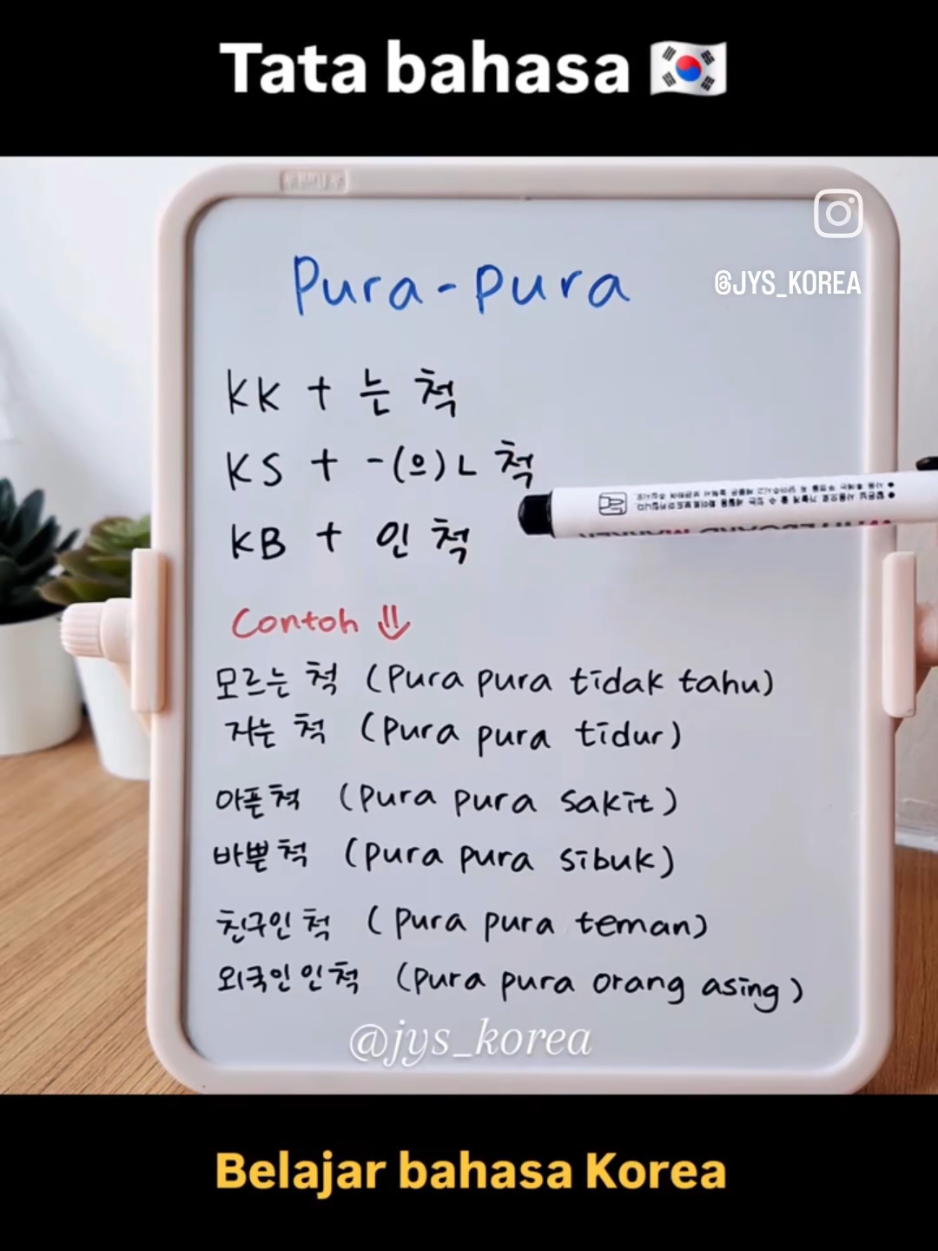 Tata bahasa 🇰🇷
@JYS_KOREA
Pura-pura
KK + 는 척
KS + -(으)ㄴ 척
KB + 인 척
Contoh ⇓
모르는 척 (Pura pura tidak tahu)
자는 척 (Pura pura tidur)
아픈척 (Pura pura sakit)
바쁜척 (Pura pura sibuk)
친구인 척 (Pura pura teman)
외국인인척 (Pura pura orang asing)
@jys_korea
Belajar bahasa Korea